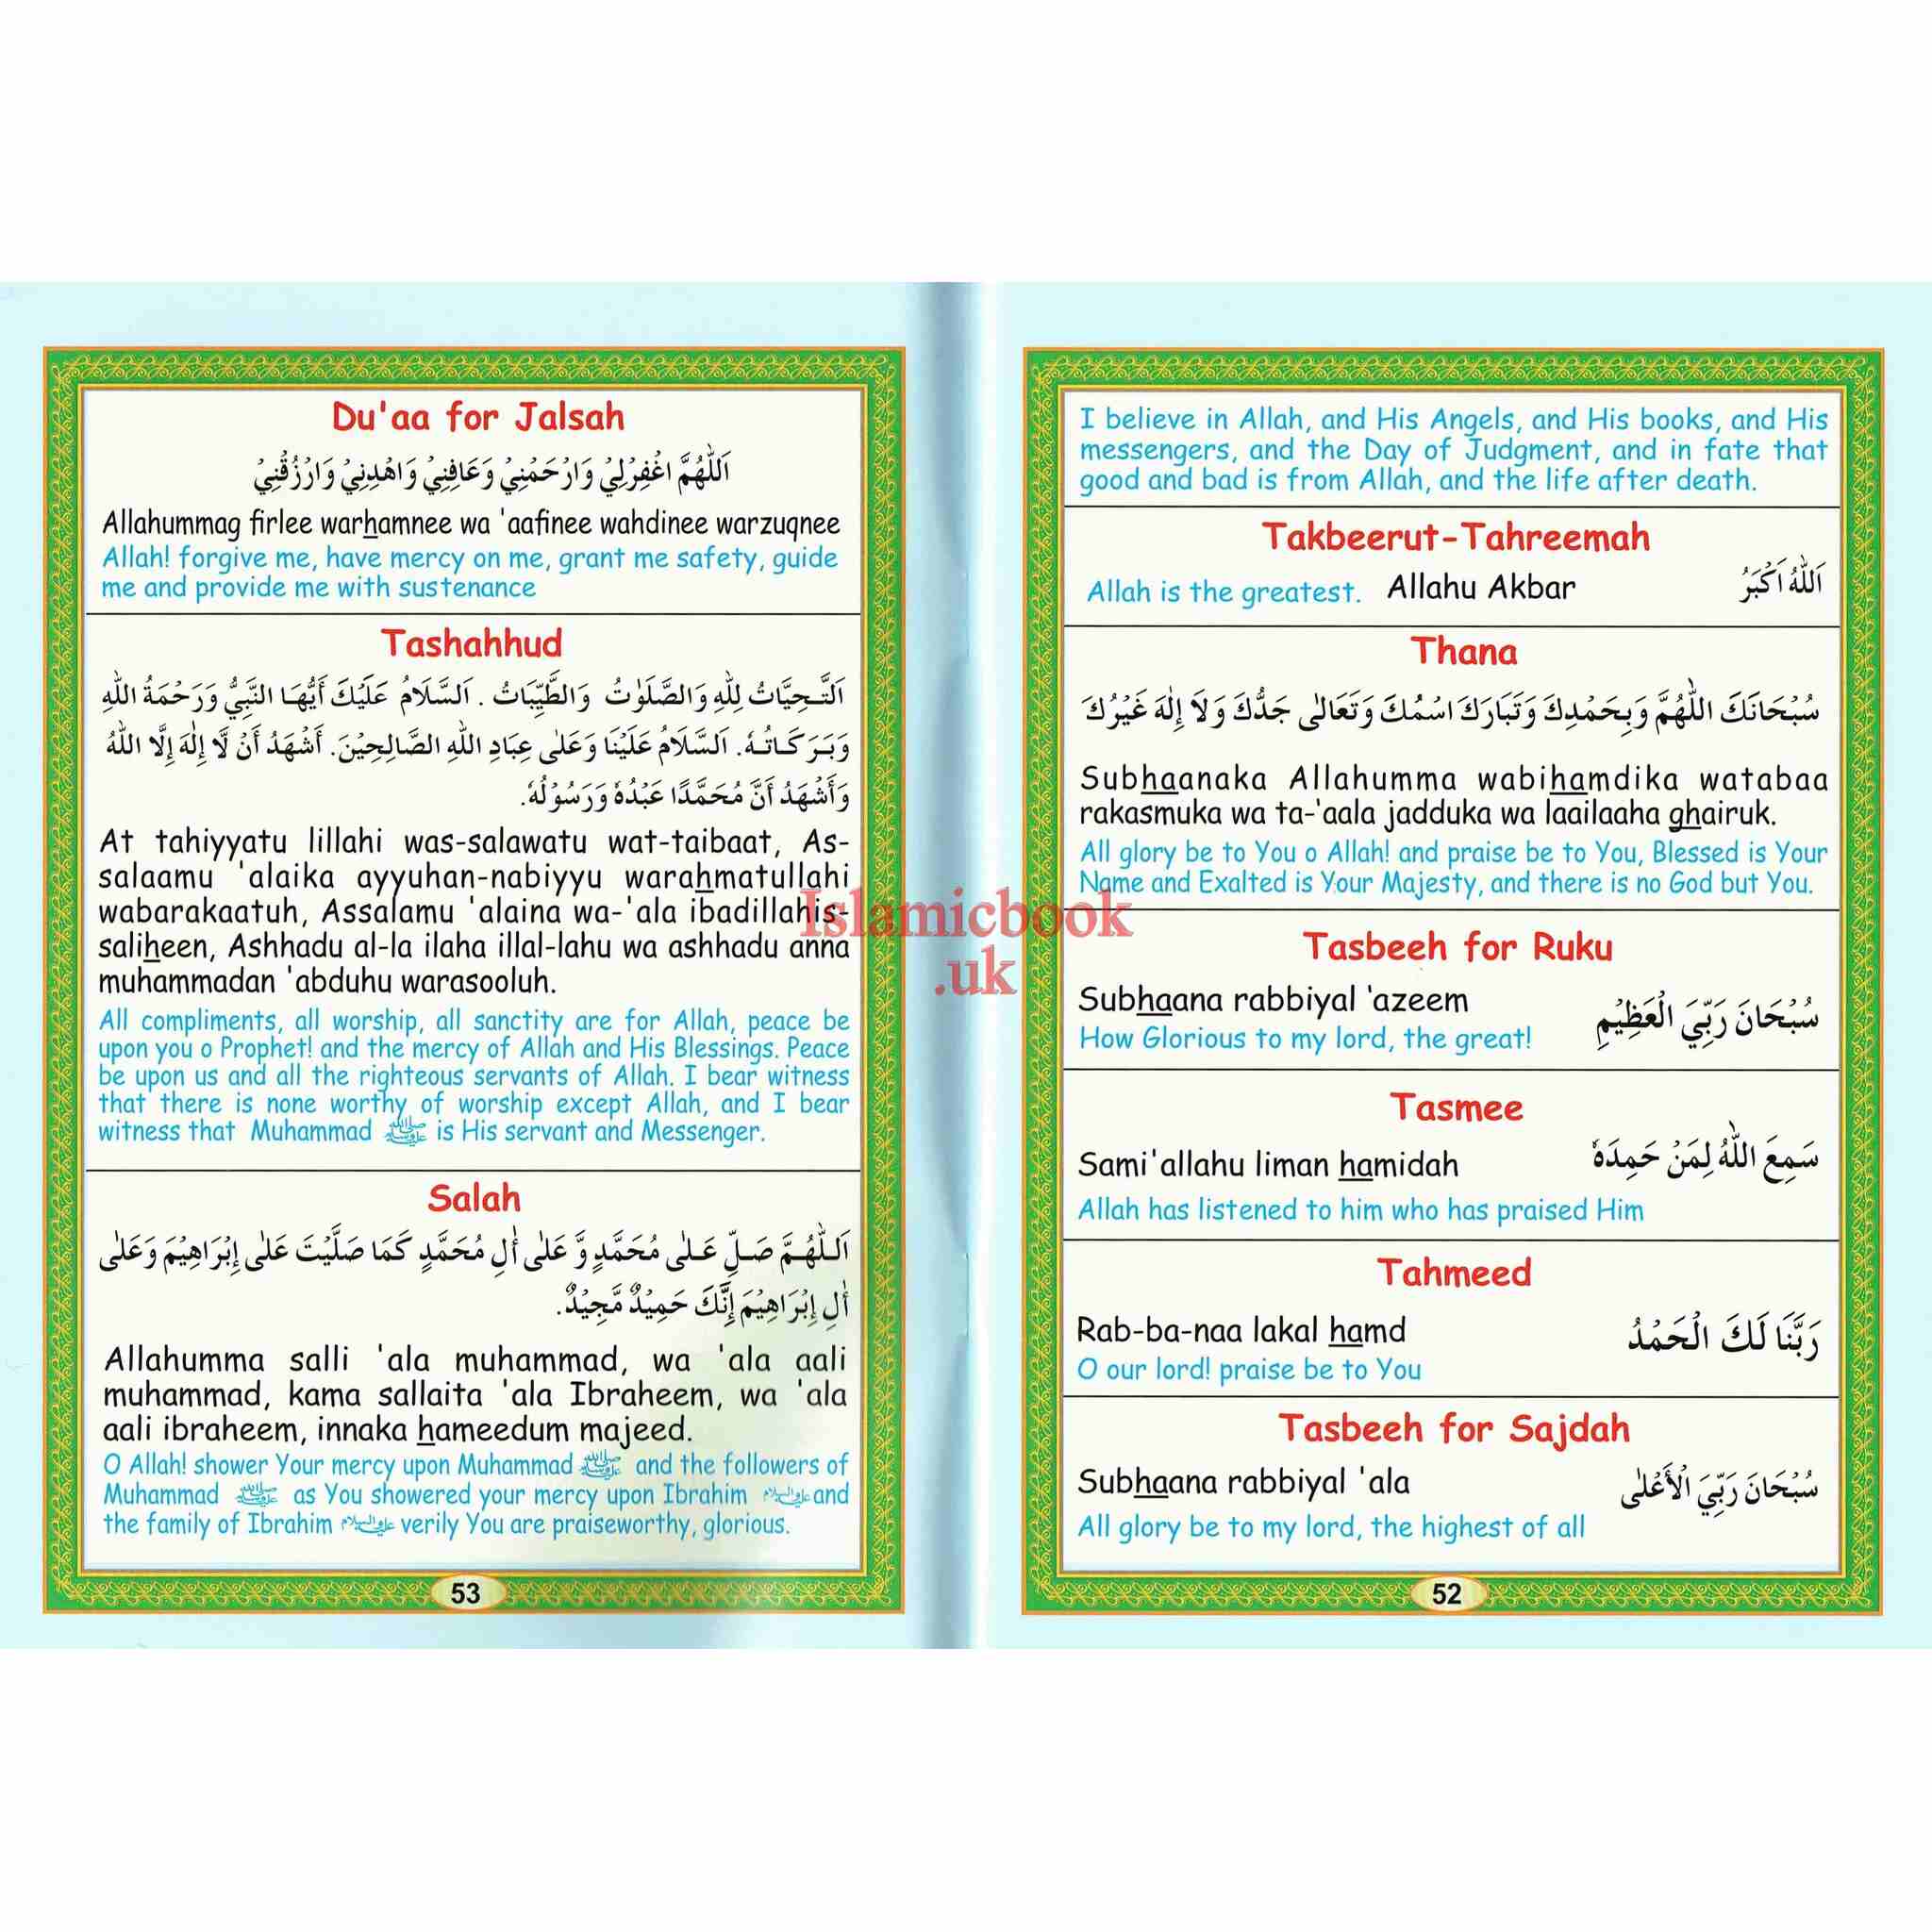 I believe in Allah, and His Angels, and His books, and His
messengers, and the Day of Judgment, and in fate that
good and bad is from Allah, and the life after death.
Takbeerut-Tahreemah
Allah is the greatest. Allahu Akbar اَللّٰهُ اَكْبَرُ
Thana
سُبْحَانَكَ اللّٰهُمَّ وَبِحَمْدِكَ وَتَبَارَكَ اسْمُكَ وَتَعَالٰى جَدُّكَ وَلَا إِلٰهَ غَيْرُكَ
Subhaanaka Allahumma wabihamdika watabaa
rakasmuka wa ta-'aala jadduka wa laailaaha ghairuk.
All glory be to You o Allah! and praise be to You, Blessed is Your
Name and Exalted is Your Majesty, and there is no God but You.
Tasbeeh for Ruku
Subhaana rabbiyal 'azeem سُبْحَانَ رَبِّيَ الْعَظِيْمِ
How Glorious to my lord, the great!
Tasmee
Sami'allahu liman hamidah سَمِعَ اللّٰهُ لِمَنْ حَمِدَهٗ
Allah has listened to him who has praised Him
Tahmeed
Rab-ba-naa lakal hamd رَبَّنَا لَكَ الْحَمْدُ
O our lord! praise be to You
Tasbeeh for Sajdah
Subhaana rabbiyal 'ala سُبْحَانَ رَبِّيَ الْأَعْلٰى
All glory be to my lord, the highest of all
52
Du'aa for Jalsah
اَللّٰهُمَّ اغْفِرْلِيْ وَارْحَمْنِيْ وَعَافِنِيْ وَاهْدِنِيْ وَارْزُقْنِيْ
Allahummag firlee warhamnee wa 'aafinee wahdinee warzuqnee
Allah! forgive me, have mercy on me, grant me safety, guide
me and provide me with sustenance
Tashahhud
اَلتَّحِيَّاتُ لِلّٰهِ وَالصَّلَوٰتُ وَالطَّيِّبَاتُ . اَلسَّلَامُ عَلَيْكَ أَيُّهَا النَّبِيُّ وَرَحْمَةُ اللّٰهِ
وَبَرَكَاتُهٗ. اَلسَّلَامُ عَلَيْنَا وَعَلٰى عِبَادِ اللّٰهِ الصَّالِحِيْنَ. أَشْهَدُ أَنْ لَّا إِلٰهَ إِلَّا اللّٰهُ
وَأَشْهَدُ أَنَّ مُحَمَّدًا عَبْدُهٗ وَرَسُوْلُهٗ.
At tahiyyatu lillahi was-salawatu wat-taibaat, As-
salaamu 'alaika ayyuhan-nabiyyu warahmatullahi
wabarakaatuh, Assalamu 'alaina wa-'ala ibadillahis-
saliheen, Ashhadu al-la ilaha illal-lahu wa ashhadu anna
muhammadan 'abduhu warasooluh.
All compliments, all worship, all sanctity are for Allah, peace be
upon you o Prophet! and the mercy of Allah and His Blessings. Peace
be upon us and all the righteous servants of Allah. I bear witness
that there is none worthy of worship except Allah, and I bear
witness that Muhammad ﷺ is His servant and Messenger.
Salah
اَللّٰهُمَّ صَلِّ عَلٰى مُحَمَّدٍ وَّعَلٰى أٰلِ مُحَمَّدٍ كَمَا صَلَّيْتَ عَلٰى إِبْرَاهِيْمَ وَعَلٰى
أٰلِ إِبْرَاهِيْمَ إِنَّكَ حَمِيْدٌ مَّجِيْدٌ.
Allahumma salli 'ala muhammad, wa 'ala aali
muhammad, kama sallaita 'ala Ibraheem, wa 'ala
aali ibraheem, innaka hameedum majeed.
O Allah! shower Your mercy upon Muhammad ﷺ and the followers of
Muhammad ﷺ as You showered your mercy upon Ibrahim عليه السلام and
the family of Ibrahim عليه السلام verily You are praiseworthy, glorious.
53
Islamicbook
.uk